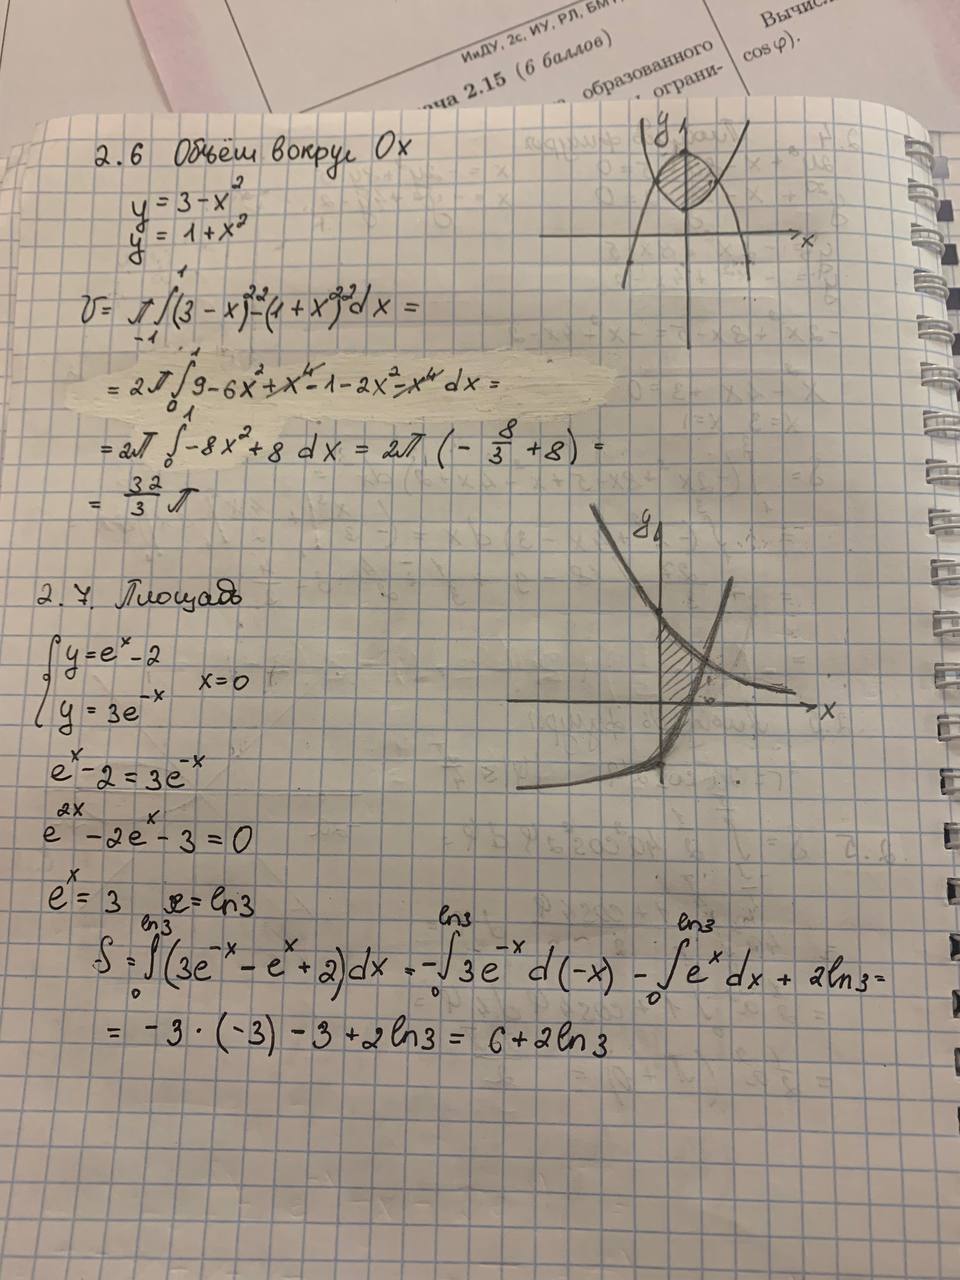 ИиДУ, 2с, ИУ, РЛ, БМТ
ача 2.15 (6 баллов)
образованного
ограни-
Вычисл
cos φ).
2.6 Объём вокруг Ox
y = 3 - x²
y = 1 + x²
V = π∫₋₁¹(3 - x²)² - (1 + x²)² dx =
= 2π∫₀¹ 9 - 6x² + x⁴ - 1 - 2x² - x⁴ dx =
= 2π ∫₀¹ -8x² + 8 dx = 2π (- 8/3 + 8) =
= 32/3 π
y
x
2.7. Площадь
y = eˣ - 2
x = 0
y = 3e⁻ˣ
eˣ - 2 = 3e⁻ˣ
e²ˣ - 2eˣ - 3 = 0
eˣ = 3 x = ln3
S = ∫₀ˡⁿ³(3e⁻ˣ - eˣ + 2)dx = -∫₀ˡⁿ³ 3e⁻ˣ d(-x) - ∫₀ˡⁿ³ eˣ dx + 2ln3 =
= -3 · (-3) - 3 + 2ln3 = 6 + 2ln3
y
x